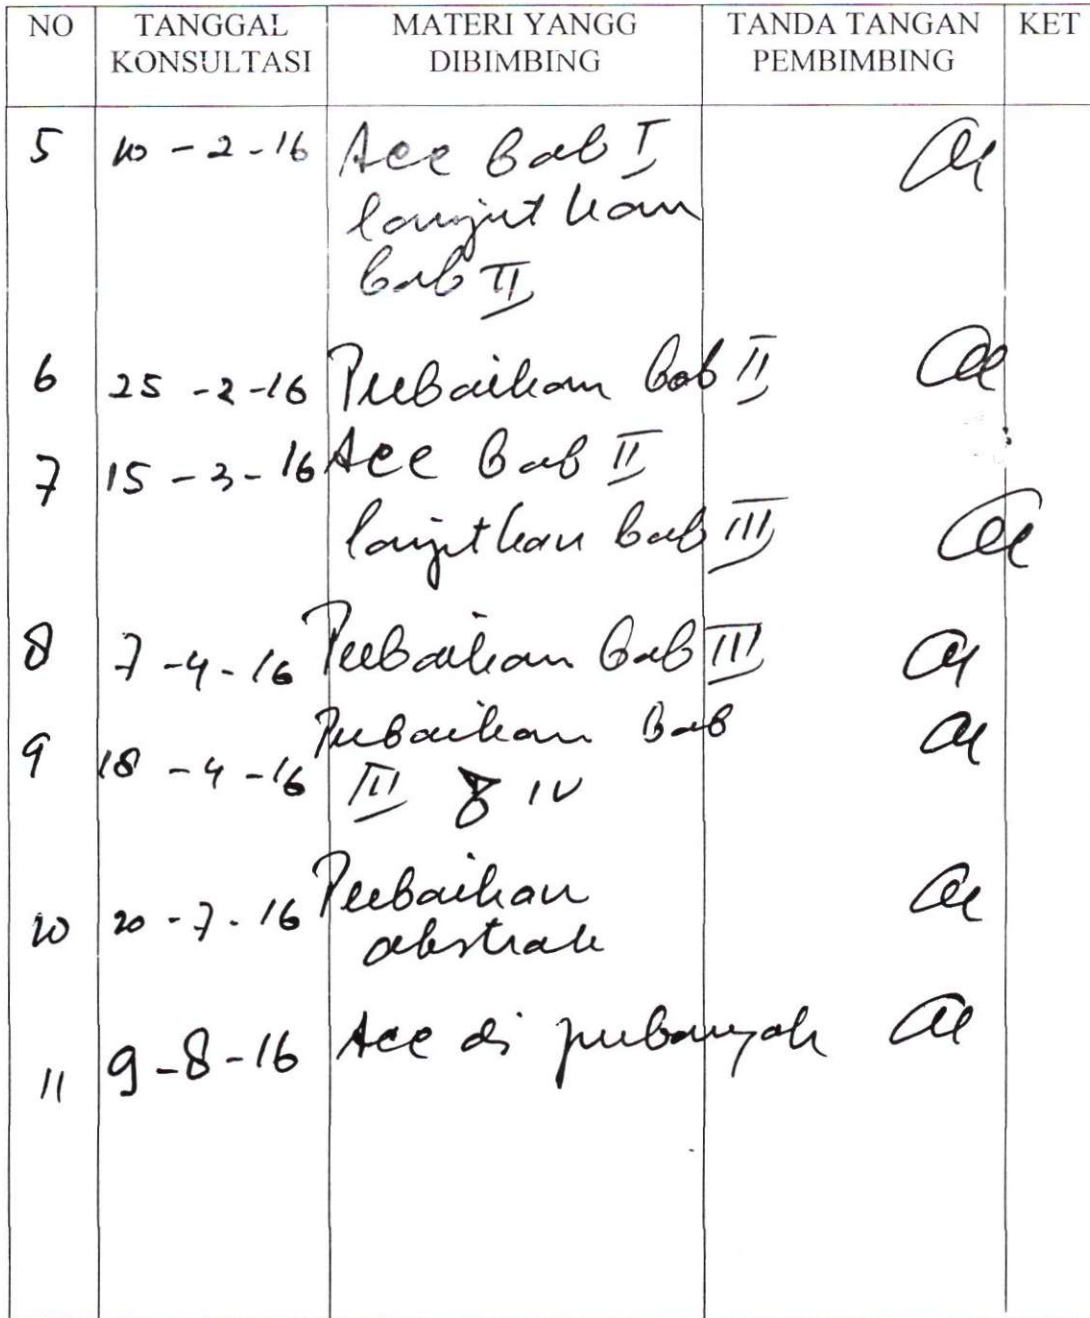 NO TANGGAL KONSULTASI MATERI YANGG DIBIMBING TANDA TANGAN PEMBIMBING KET
5 10-2-16 Acc Bab I
lanjutkan
bab II
6 25-2-16 Perbaikan bab II
7 15-3-16 Acc Bab II
lanjutkan bab III
8 7-4-16 Perbaikan bab III
9 18-4-16 Perbaikan Bab
III & IV
10 20-7-16 Perbaikan
abstrak
11 9-8-16 Acc di perbanyak